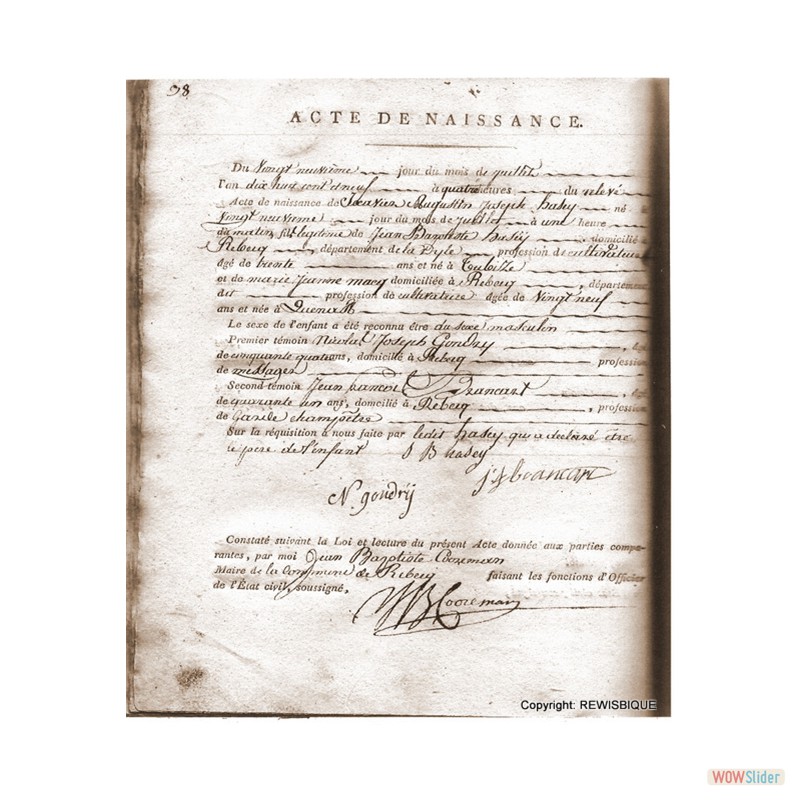 98
ACTE DE NAISSANCE.
Du Vingt neuvième jour du mois de juillet
l'an dix huit cent et neuf à quatre heures du relevé
Acte de naissance de Augustin Joseph hasey né
Vingt neuvieme jour du mois de juillet à une heure
du matin, fils legitime de Jean Baptiste hasey domicilié à
Rebecq département de la Dyle profession de cultivateur
âgé de trente ans et né à
et de marie Jeanne macq domiciliée à Rebecq, département
dit profession de cultivateur âgée de Vingt neuf
ans et née à Quenast
Le sexe de l'enfant a été reconnu être du sexe masculin
Premier témoin Nicolas Joseph Gondry
de cinquante quatre ans, domicilié à Rebecq profession
de messager
Second témoin Jean francois Brancart
de quarante un ans, domicilié à Rebecq, profession
de Garde champêtre
Sur la réquisition à nous faite par ledit hasey qui a declaré être
le pere de l'enfant J B hasey
j f brancart
N. gondrÿ
Constaté suivant la Loi et lecture du présent Acte donnée aux parties compa-
rantes, par moi Jean Baptiste Cooreman
Maire de la Commune de Rebecq faisant les fonctions d'Officier
de l'État civil, soussigné,
JB Cooreman
Copyright: REWISBIQUE
WOWSlider